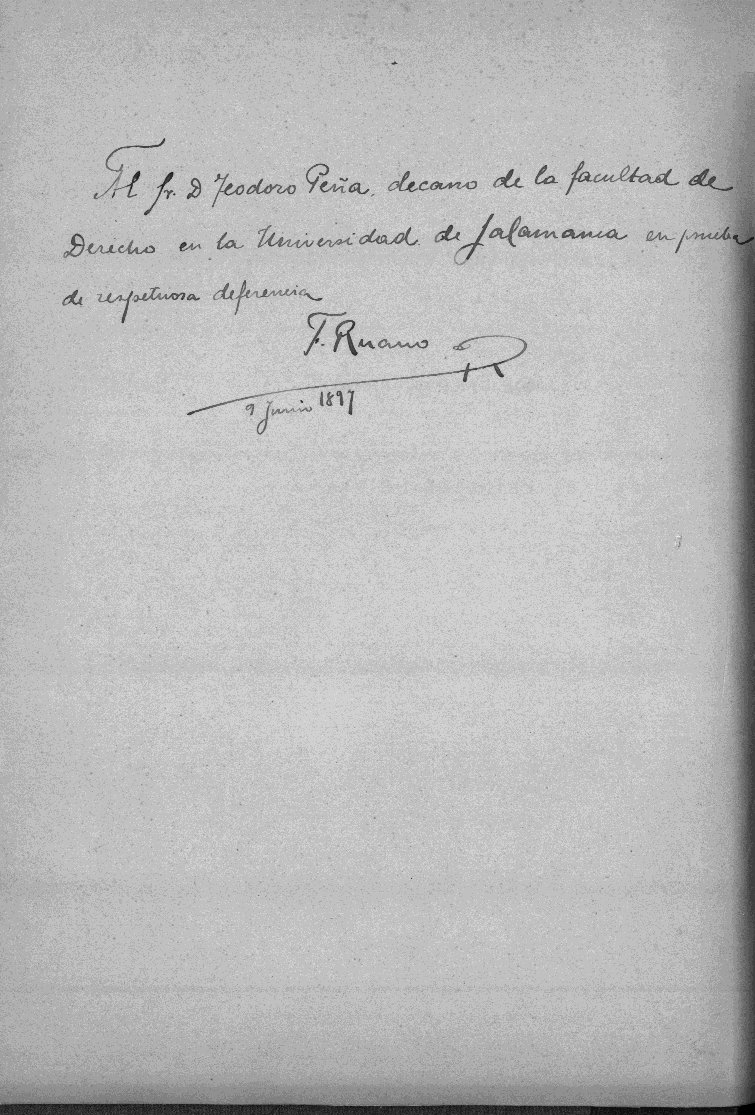 Al Sr. D Teodoro Peña, decano de la facultad de
Derecho en la Universidad de Salamanca en prueba
de respetuosa deferencia
F. Ruano
9 Junio 1897